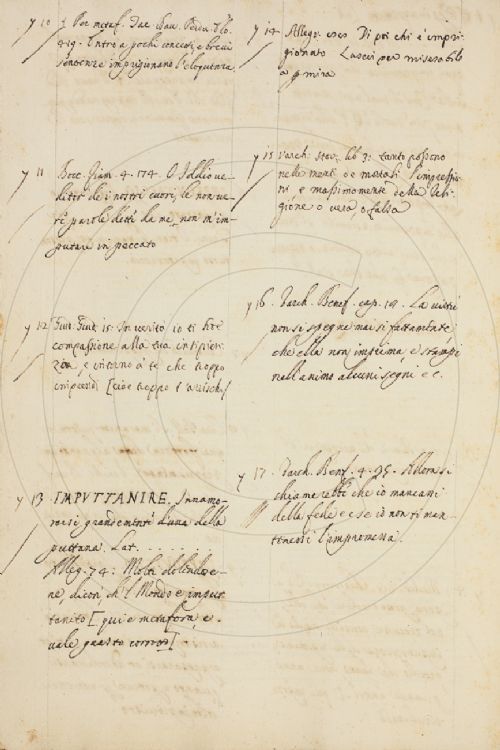 y 10 § Per metaf. Dav.
419. Entro a pochi concetti, e brevi
sentenze imprigionano l'eloquenza
y 11 Bocc. Fiam. 4. 174. O Iddio ve-
ditor de i nostri cuori, le non ve-
re parole dette da me, non m'im-
putare in peccato
y 12 Guid. Giud. 15: In verità io ti ho
compassione alla tua insipien-
zia, e ritorno a te che troppo
imprendi [cioè troppo t'arrischi]
y 13 IMPUTTANIRE. Innamo-
rarsi grandemente d'una della
puttana. Lat. . . . . . . .
Alleg. 74: Molti dolendose-
ne, dicon, ch'l Mondo è imput-
tanito [qui è metafora, e
vale guasto corrotto]
y 14 Allegr. 
 Di poi chi è impri-
gionato Lascisi per miserabile
a
 mira
y 15 Varch. Stor. lib 3: tanto possono
nelle menti de mortali l'impressio-
ni e massimamente della Reli-
gione o vera o falsa
y 16. Varch. Benef. cap. 19. La virtù
non si spegne mai sì fattamente
che ella non imprima, e stampi
nell'animo alcuni segni ec.
y 17. Varch. Benf. 4. 35. Allora si
chiamerebbe che io mancassi
della fede ec se io non ti man-
tenessi l'impromessa.